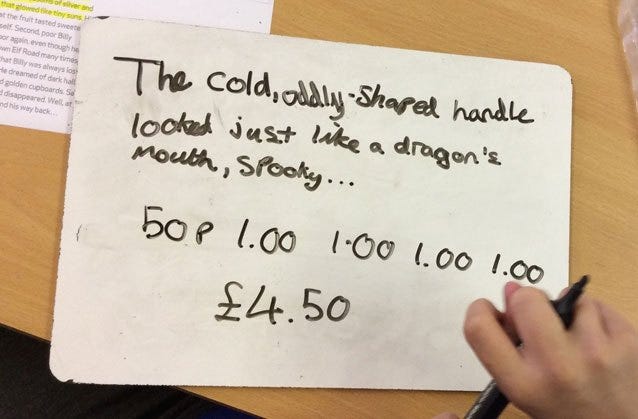 of silver and
that glowed like tiny suns. H
at the fruit tasted sweete
self. Second, poor Billy
oor again, even though he
wn Elf Road many times
hat Billy was always los
He dreamed of dark hall
d golden cupboards. Se
disappeared. Well, at
nd his way back...
The cold, oddly-shaped handle
looked just like a dragon's
mouth, spooky...
50p 1.00 1.00 1.00 1.00
£4.50